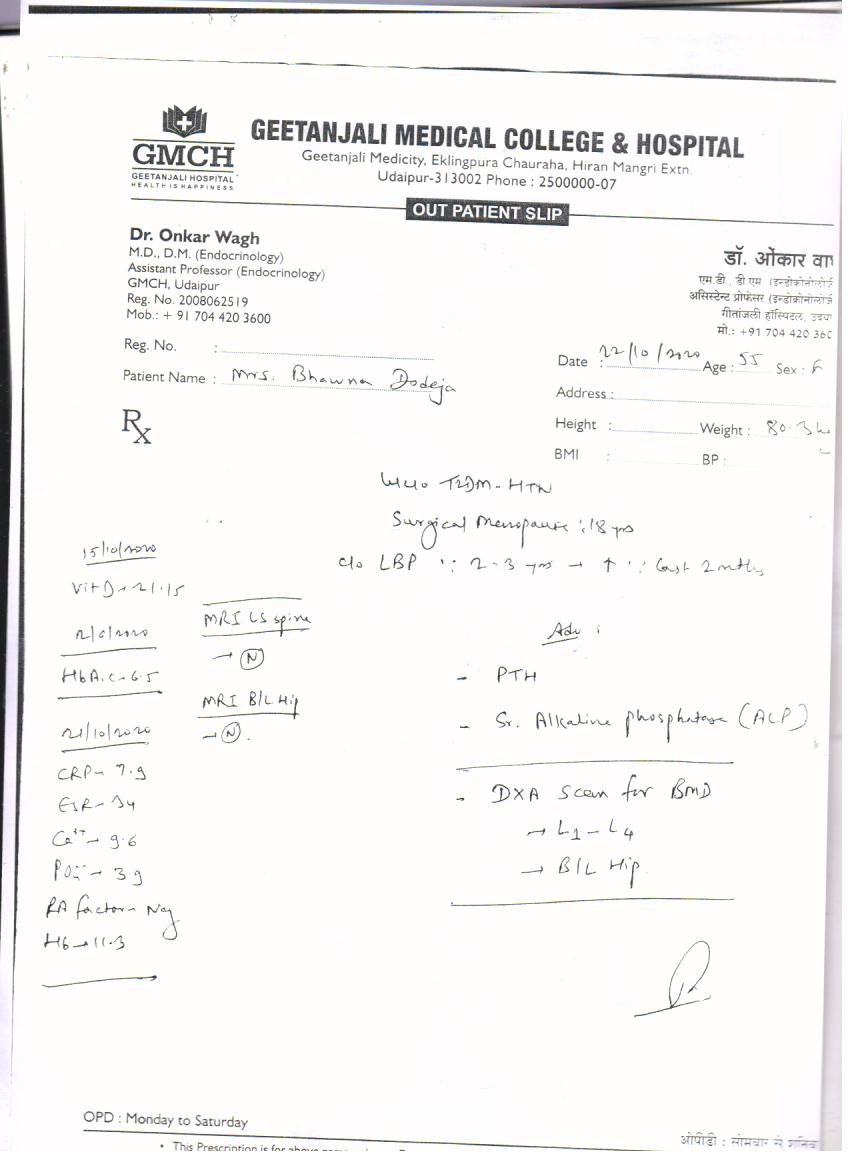 GMCH
GEETANJALI HOSPITAL
HEALTH IS HAPPINESS
GEETANJALI MEDICAL COLLEGE & HOSPITAL
Geetanjali Medicity, Eklingpura Chauraha, Hiran Mangri Extn.
Udaipur-313002 Phone : 2500000-07
OUT PATIENT SLIP
Dr. Onkar Wagh
M.D., D.M. (Endocrinology)
Assistant Professor (Endocrinology)
GMCH, Udaipur
Reg. No. 2008062519
Mob.: + 91 704 420 3600
डॉ. ओंकार वा
एम.डी., डी.एम (इन्डोक्रोनोलोर्ज
असिस्टेन्ट प्रोफेसर (इन्डोक्रोनोलोर्ज
गीतांजली हॉस्पिटल, उदय
मो.: +91 704 420 360
Reg. No. :
Date : 22/10/2020 Age : 55 Sex : F
Patient Name : Mrs. Bhawna Dodeja
Address :
Height : Weight : 80.3
BMI : BP :
Rx
T2DM - HTN
Surgical Menopause : 18 yrs
c/o LBP ∵ 2-3 yrs → ↑ ∵ last 2 mths
15/10/2020
Vit D → 21.15
2020
HbA1c - 6.5
21/10/2020
CRP - 7.9
ESR - 34
Ca++ → 9.6
PO4 → 3.9
RA factor - Neg
Hb → 11.3
MRI LS spine
→ N
MRI B/L Hip
→ N.
Adv :
- PTH
- Sr. Alkaline phosphatase (ALP)
- DXA Scan for BMD
→ L1 - L4
→ B/L Hip
OPD : Monday to Saturday
ओपीडी : सोमवार से शनिव
• This Prescription is for above